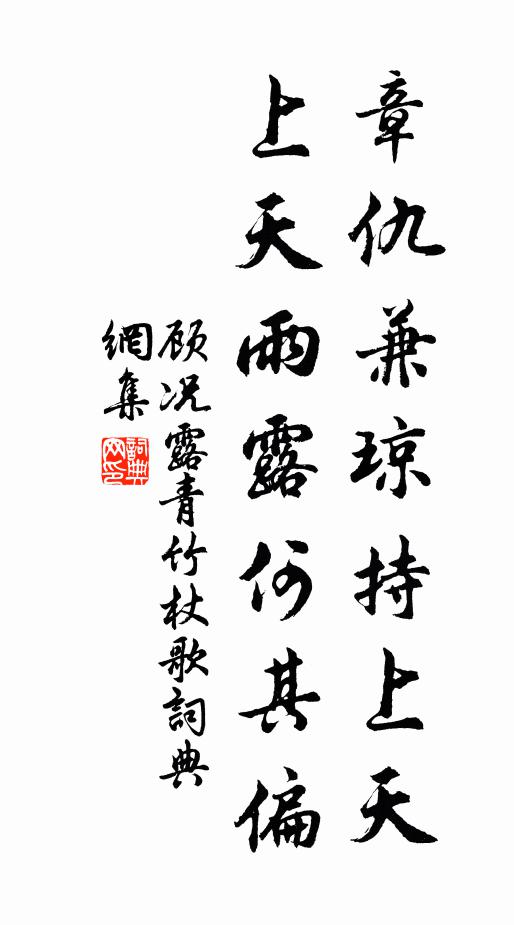 章仇兼琼持上天
上天雨露何其偏
顾况露青竹杖歌詞典
網集
詞典网印